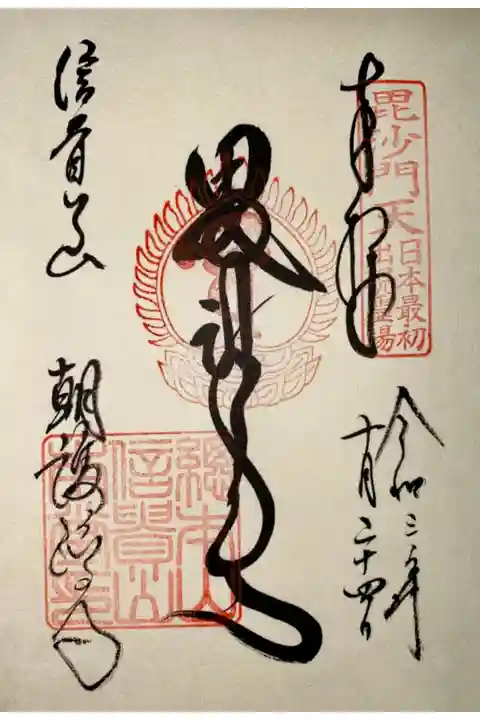 奉拝
毘沙門天
日本最初
出現霊場
令和三年
十月二十四日
總本山
信貴山
信貴山
朝護孫子寺